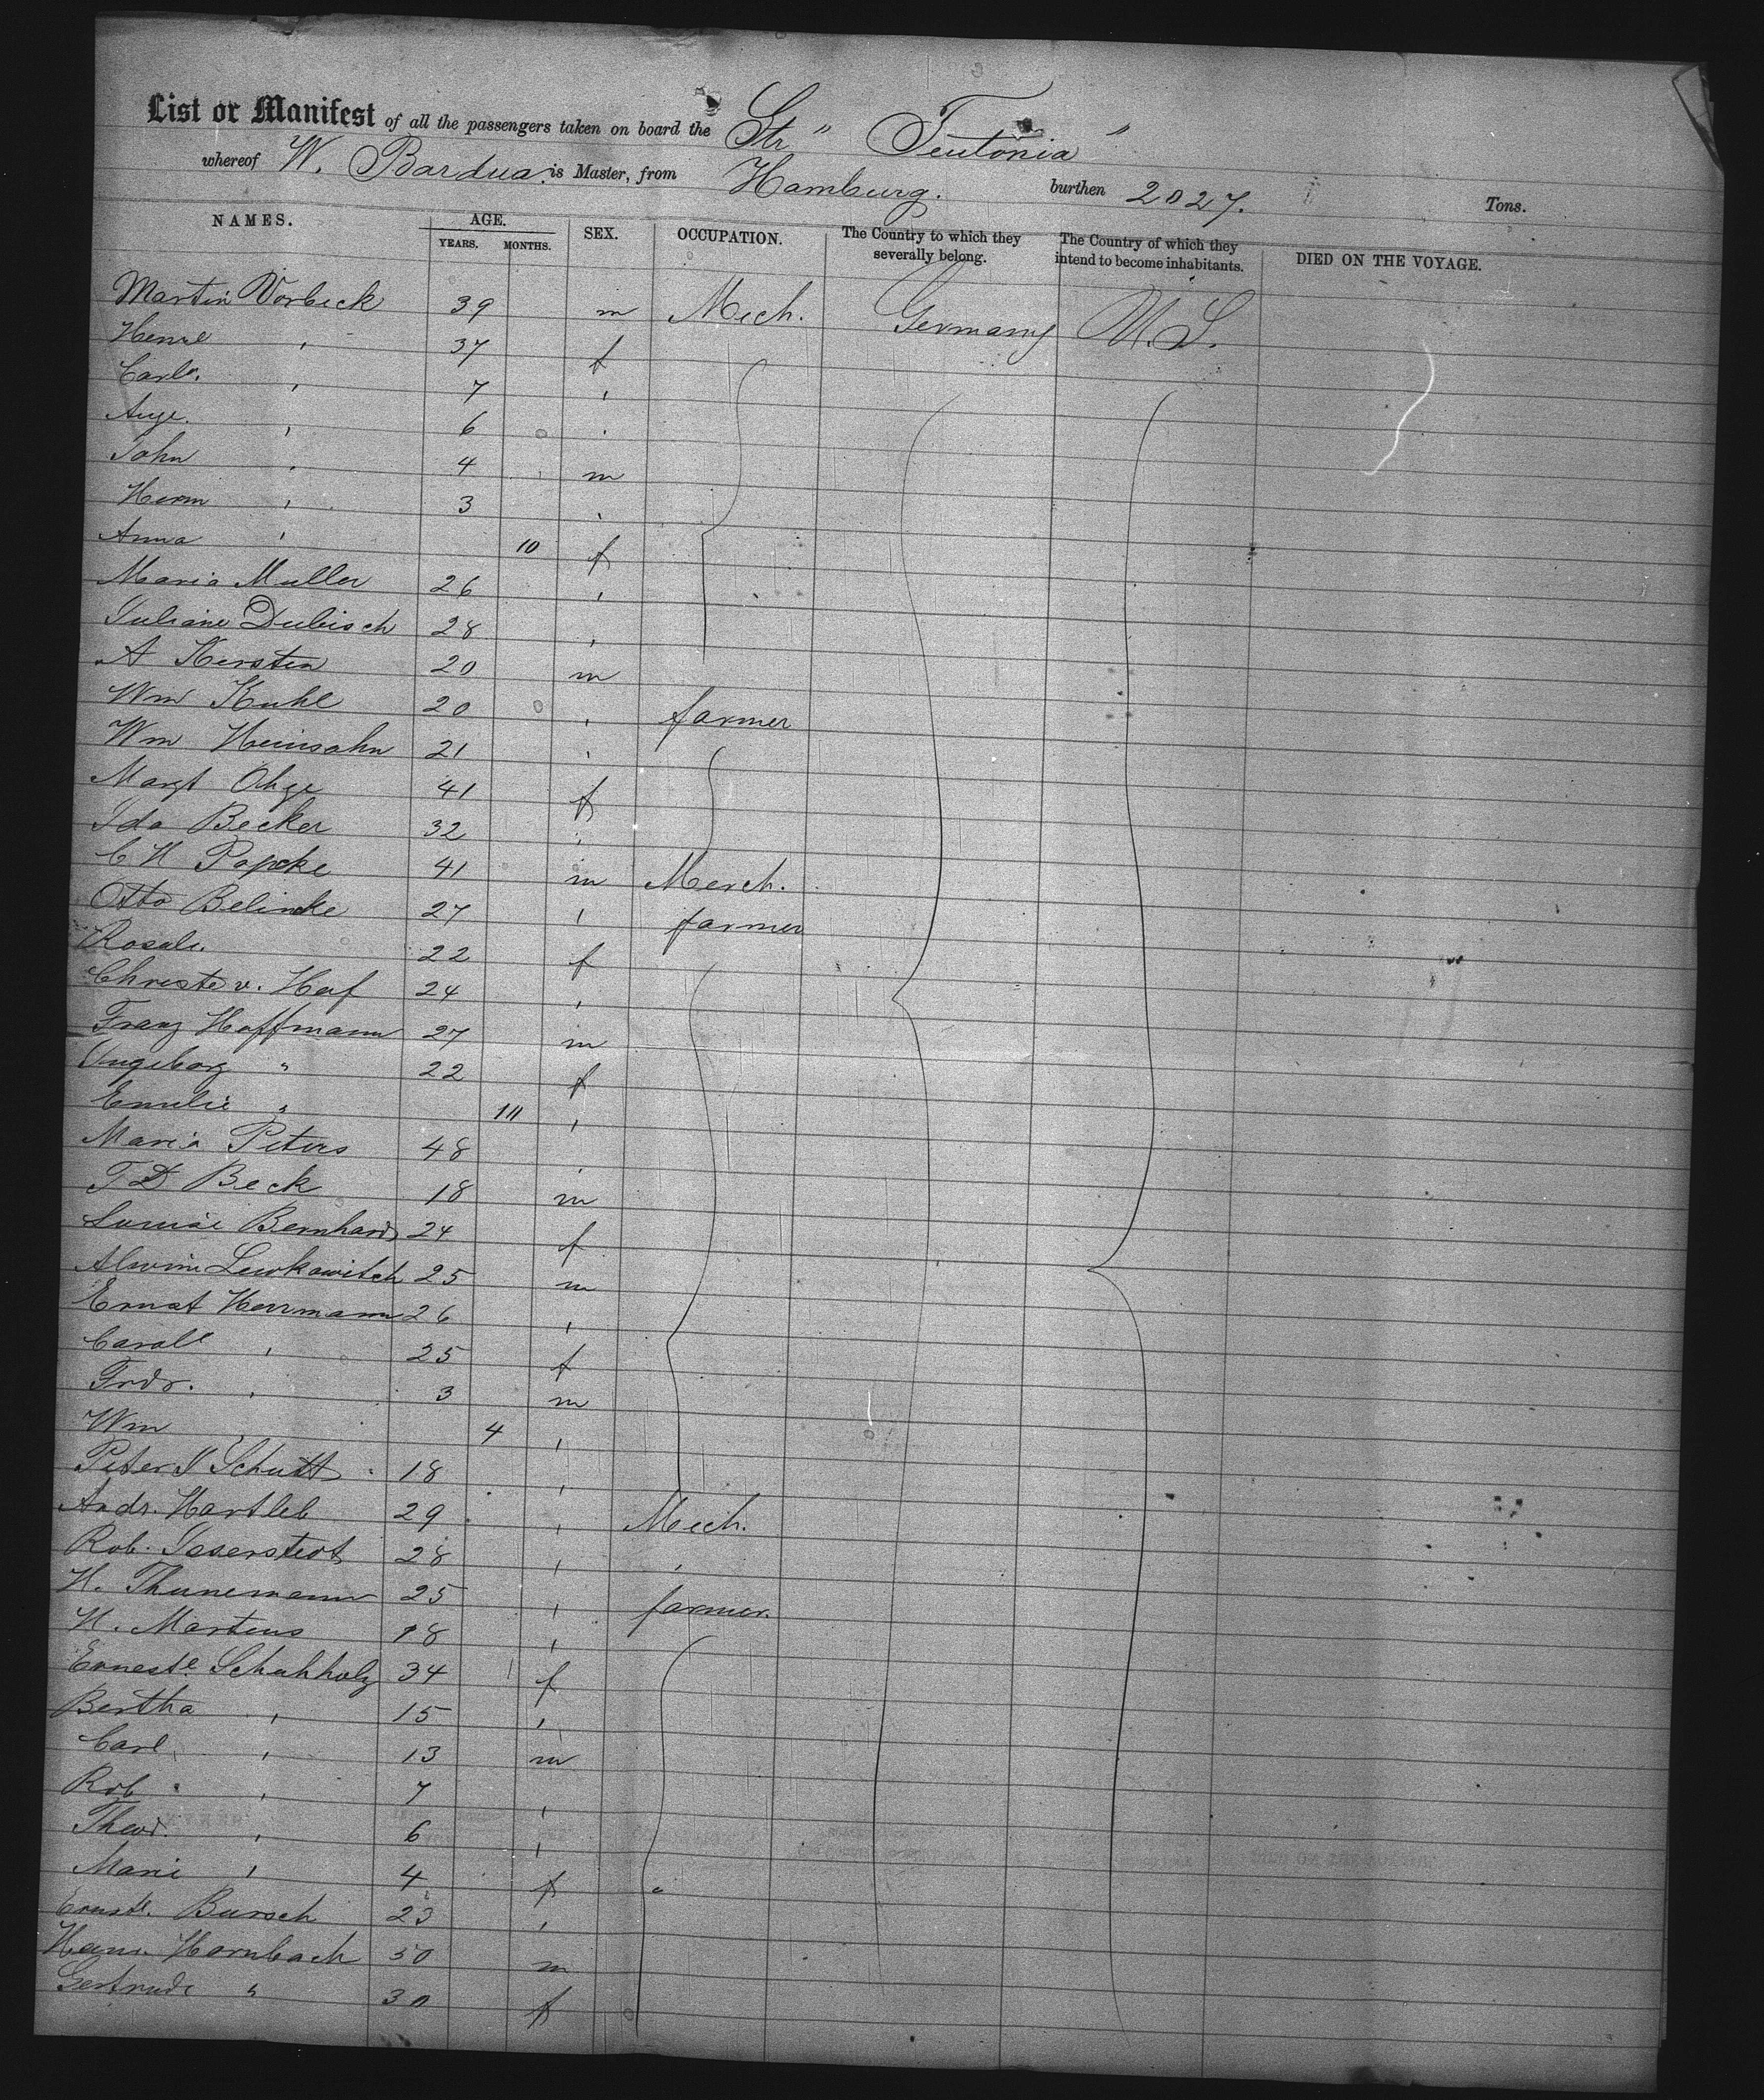 List or Manifest of all the passengers taken on board the Str " Teutonia "
whereof W. Bardua is Master, from Hamburg. burthen 2027. Tons.
NAMES. AGE. YEARS. MONTHS. SEX. OCCUPATION. The Country to which they severally belong. The Country of which they intend to become inhabitants. DIED ON THE VOYAGE.
Martin Vorbeck 39 m Mech. Germany U.S.
Henre " 37 f
Carle. " 7 "
Auge. " 6 "
John " 4 m
Herm " 3 "
Anna " 10 f
Maria Muller 26 "
Juliane Dubisch 28 "
A Kersten 20 m
Wm Kuhl 20 " farmer
Wm Heinsohn 21 "
Margt Ohge 41 f
Ida Becker 32 "
C H Popcke 41 m Merch.
Otto Belincke 27 " farmer
Rosale. 22 f
Christe v. Hof 24 "
Franz Hoffmann 27 m
Ingeborg " 22 f
Emilie " 11 "
Maria Peters 48 "
J D Beck 18 m
Louise Bernhard 24 f
Alwin Lewkowitch 25 m
Ernst Herrmann 26 "
Carole " 25 f
Frdr. " 3 m
Wm " 4 "
Peter J Schutt 18 "
Andr. Hartleb 29 " Mech.
Rob. 28 " "
H. Thunemann 25 " farmer.
H. Martens 18 "
Erneste Schuhholz 34 f
Bertha " 15 "
Carl " 13 m
Rob " 7 "
Theod. " 6 "
Marie " 4 f
Ernste. Bursch 23 "
Hornbach 50 m
Gertrude " 30 f